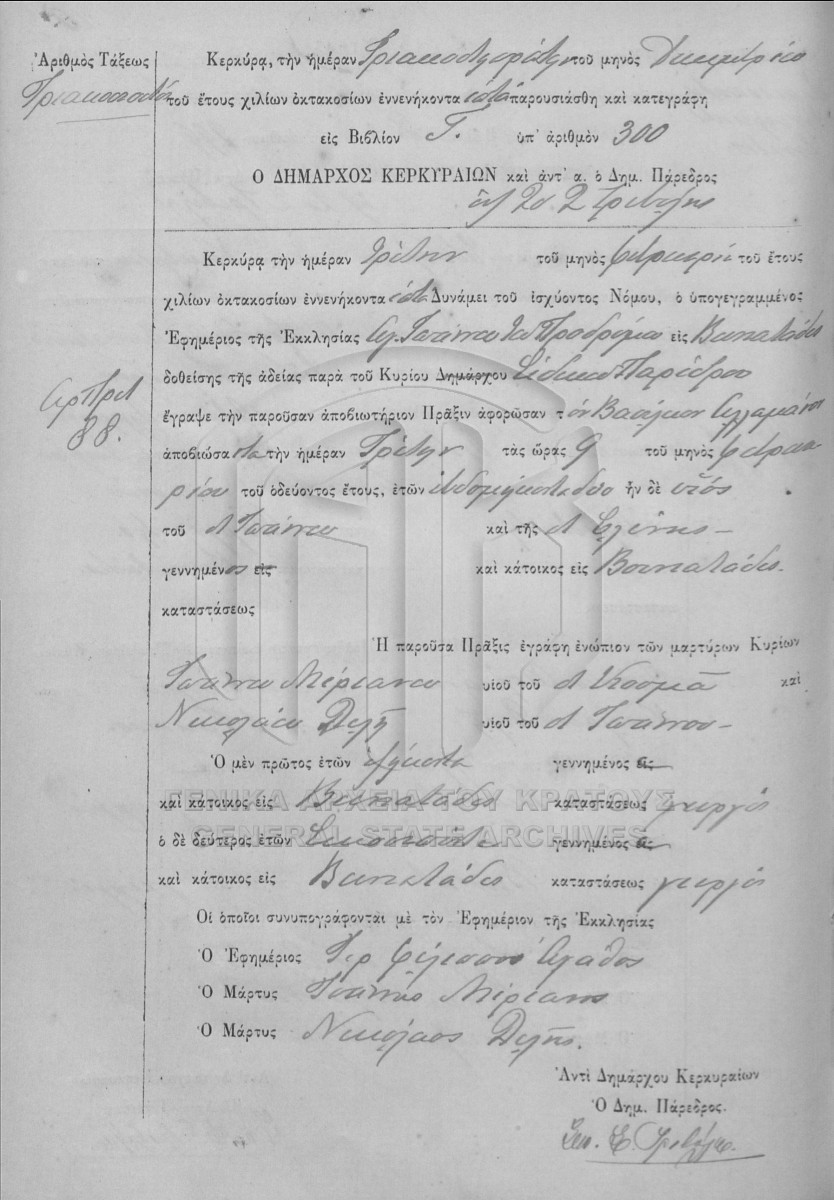 Ἀριθμὸς Τάξεως
Τριακοσιοστὴ
Κερκύρᾳ, τὴν ἡμέραν Τριακοστηπρώτην τοῦ μηνὸς Δεκεμβρίου
τοῦ ἔτους χιλίων ὀκτακοσίων ἐννενήκοντα ἑπτὰ παρουσιάσθη καὶ κατεγράφη
εἰς Βιβλίον Γ. ὑπ' ἀριθμὸν 300
Ο ΔΗΜΑΡΧΟΣ ΚΕΡΚΥΡΑΙΩΝ καὶ ἀντ' α. ὁ Δημ. Πάρεδρος
Κερκύρᾳ τὴν ἡμέραν τρίτην τοῦ μηνὸς τοῦ ἔτους
χιλίων ὀκτακοσίων ἐννενήκοντα ἑπτὰ Δυνάμει τοῦ ἰσχύοντος Νόμου, ὁ ὑπογεγραμμένος
Ἐφημέριος τῆς Ἐκκλησίας Ἁγ. Ἰωάννου τοῦ Προδρόμου εἰς Βουνατάδες
δοθείσης τῆς ἀδείας παρὰ τοῦ Κυρίου Δημάρχου Εἰδικοῦ Παρέδρου
Ἀρ. Πρωτ
88.
ἔγραψε τὴν παροῦσαν ἀποβιωτήριον Πρᾶξιν ἀφορῶσαν τὸν Βασίλειον
ἀποβιώσαντα τὴν ἡμέραν Τρίτην τὰς ὥρας 9 τοῦ μηνὸς φεβρουα
ρίου τοῦ ὁδεύοντος ἔτους, ἐτῶν ἑβδομήκοντα δύο ἦν δὲ υἱός
τοῦ Ἰωάννου καὶ τῆς Ἑλένης
γεννημένος εἰς καὶ κάτοικος εἰς Βουνατάδες
καταστάσεως
Ἡ παροῦσα Πρᾶξις ἐγράφη ἐνώπιον τῶν μαρτύρων Κυρίων
Ἰωάννου Μέριανου υἱοῦ τοῦ Κοσμᾶ καὶ
Νικολάου Δελῆ υἱοῦ τοῦ Ἰωάννου
Ὁ μὲν πρῶτος ἐτῶν ἑξήκοντα γεννημένος εἰς
καὶ κάτοικος εἰς Βουνατάδες καταστάσεως γεωργός
ΓΕΝΙΚΑ ΑΡΧΕΙΑ ΤΟΥ ΚΡΑΤΟΥΣ
GENERAL STATE ARCHIVES
ὁ δὲ δεύτερος ἐτῶν γεννημένος εἰς
καὶ κάτοικος εἰς Βουνατάδες καταστάσεως γεωργός
Οἱ ὁποῖοι συνυπογράφονται μὲ τὸν Ἐφημέριον τῆς Ἐκκλησίας
Ὁ Ἐφημέριος
Ὁ Μάρτυς Ἰωάννης Μέριανος
Ὁ Μάρτυς Νικόλαος Δελῆς.
Ἀντὶ Δημάρχου Κερκυραίων
Ὁ Δημ. Πάρεδρος.